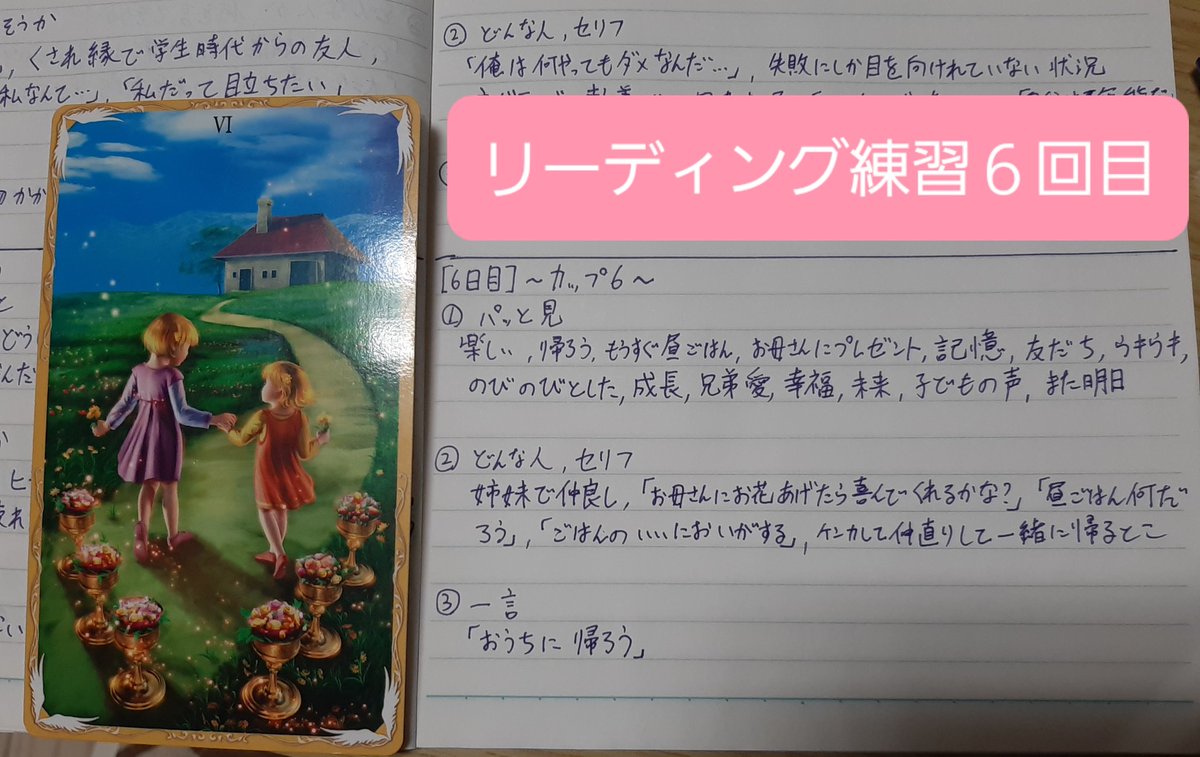 そうか
、くされ縁で学生時代からの友人,
私なんて…」,「私だって目立ちたい」
VI
② どんな人,セリフ
「俺は何やってもダメなんだ…」,失敗にしか目を向けれていない状況
リーディング練習6回目
[6日目]～カップ6～
① パッと見
楽しい,帰ろう,もうすぐ昼ごはん,お母さんにプレゼント,記憶,友だち,ウキウキ,
のびのびとした,成長,兄弟愛,幸福,未来,子どもの声,また明日
② どんな人,セリフ
姉妹で仲良し,「お母さんにお花あげたら喜んでくれるかな?」「昼ごはん何だ
ろう」,「ごはんのいいにおいがする」,ケンカして仲直りして一緒に帰るとこ
③ 一言
「おうちに帰ろう」